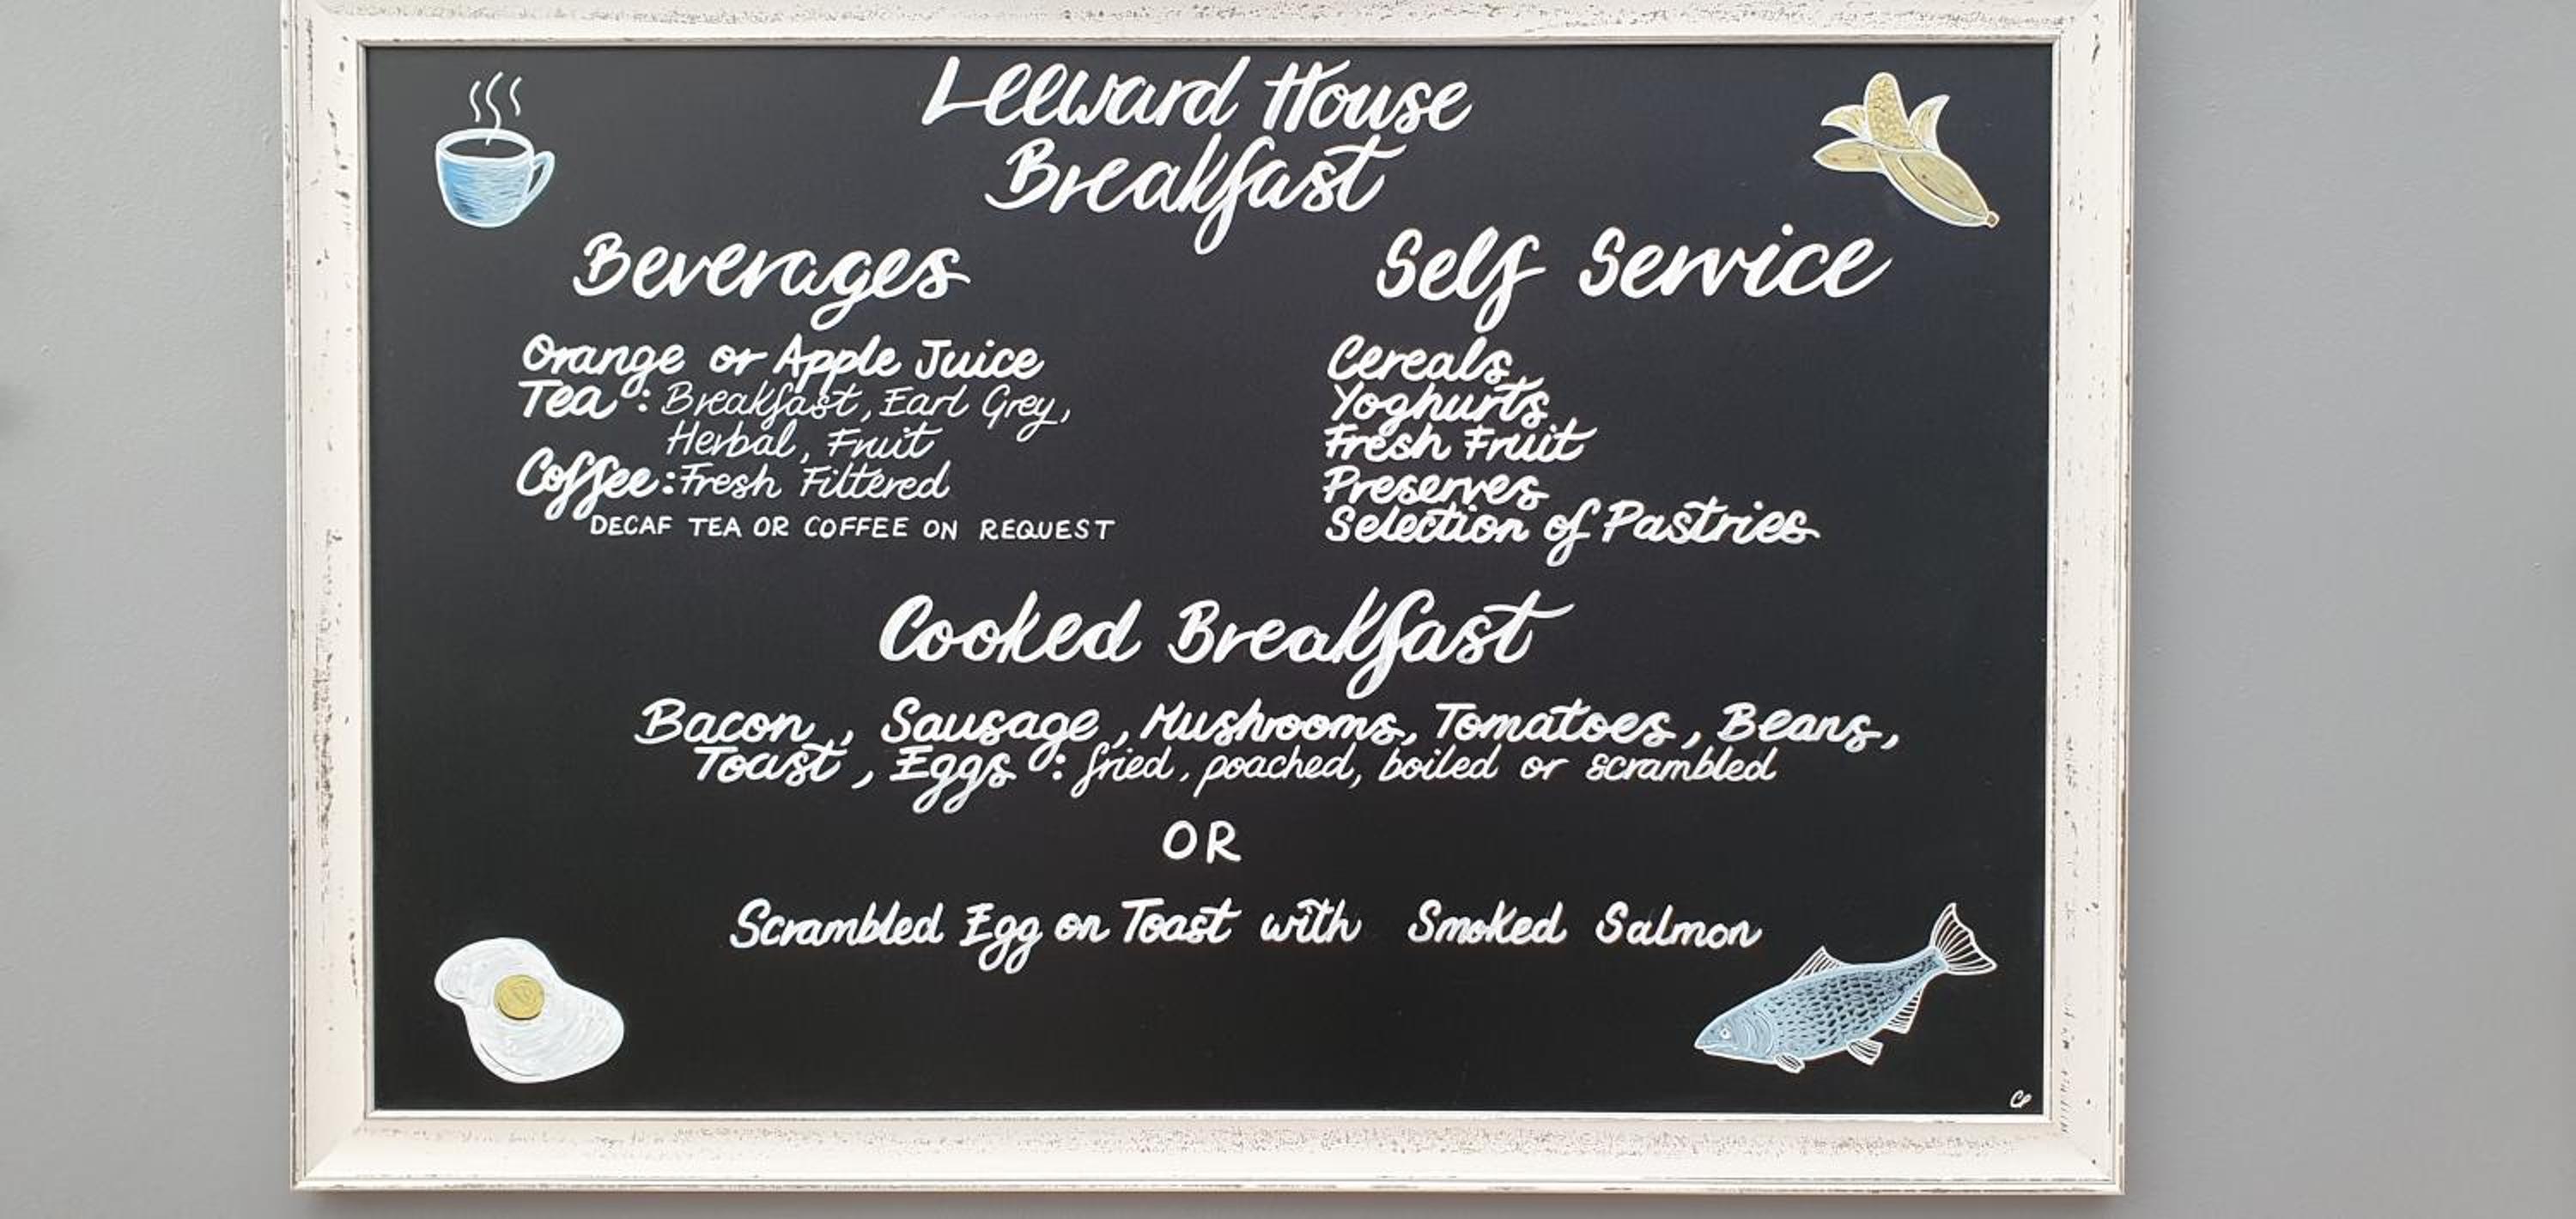 Leeward House
Breakfast
Beverages
Orange or Apple Juice
Tea: Breakfast, Earl Grey,
Herbal, Fruit
Coffee: Fresh Filtered
DECAF TEA OR COFFEE ON REQUEST
Self Service
Cereals
Yoghurts
Fresh Fruit
Preserves
Selection of Pastries
Cooked Breakfast
Bacon, Sausage, Mushrooms, Tomatoes, Beans,
Toast, Eggs: fried, poached, boiled or scrambled
OR
Scrambled Egg on Toast with Smoked Salmon